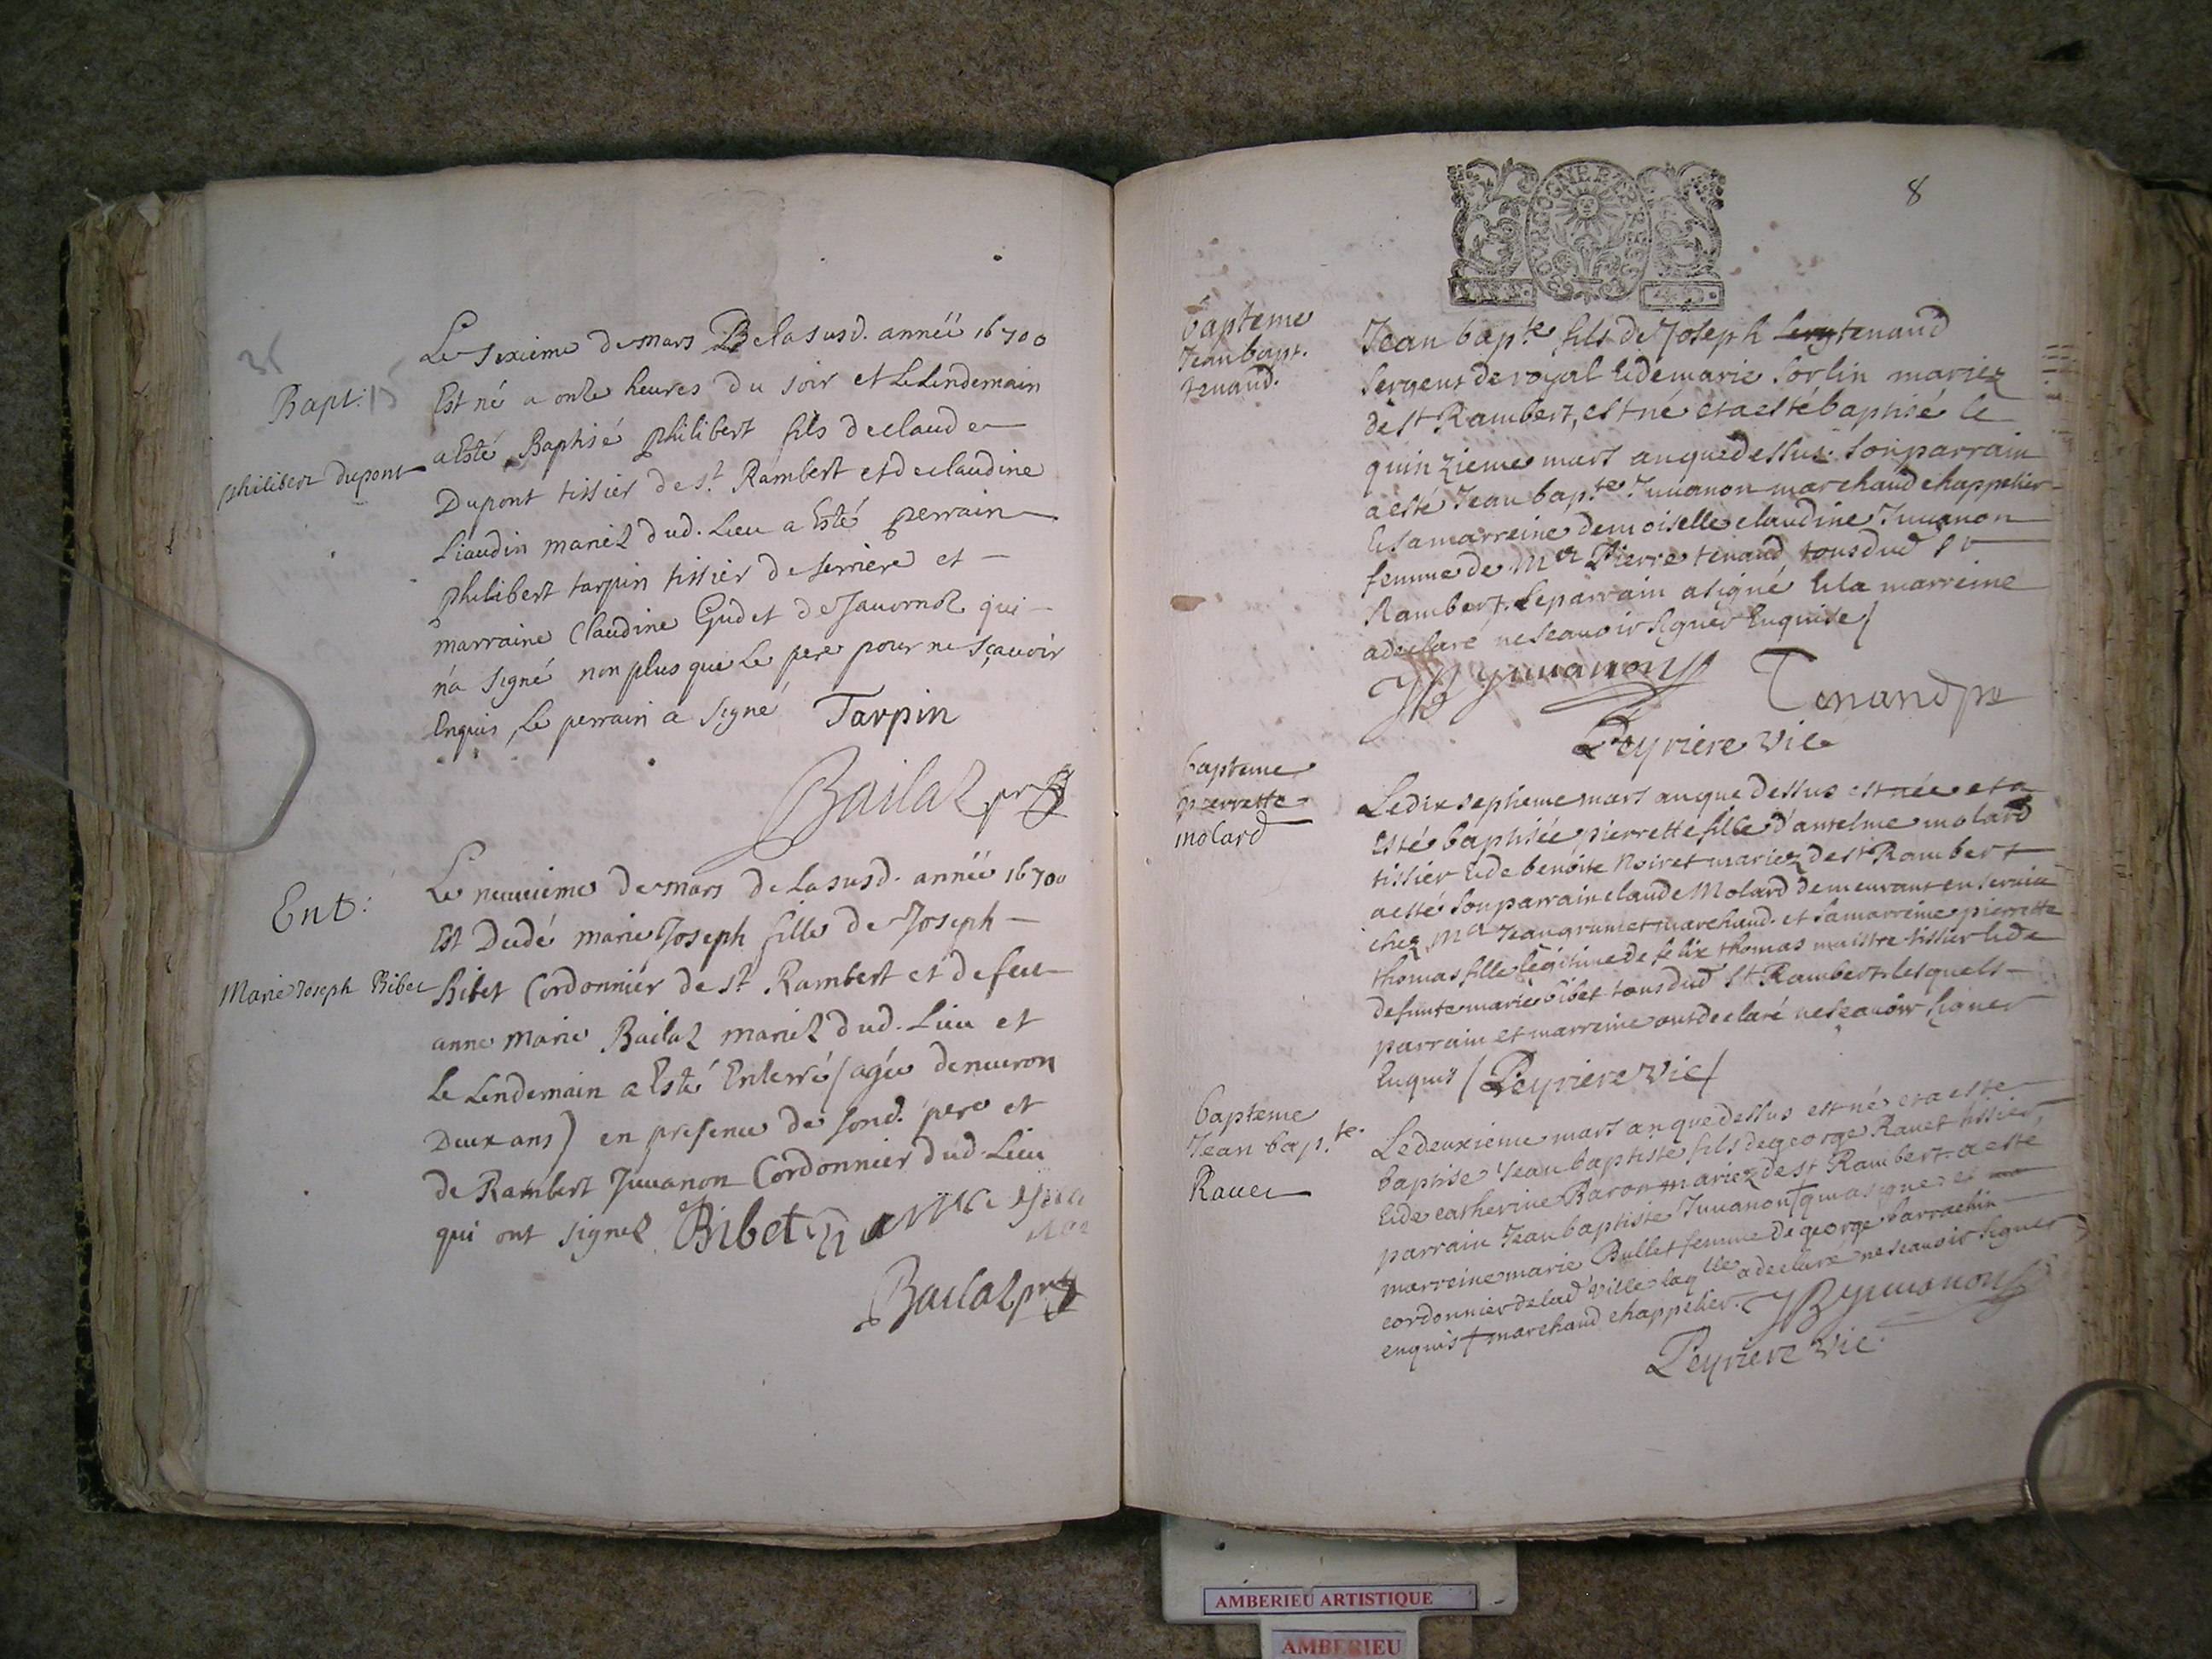 35
Bapt: 15
philibert dupont
Le sixieme de mars De la susd. année 16700
Est né a onze heures du soir et Le Lendemain
a Esté Baptisé philibert fils de claude
Dupont tissier de st. Rambert et de claudine
Liaudin mariez dud. Lieu a Esté perrain
philibert tarpin tissier de serriere et
marraine Claudine Gudet de Javornoz qui
n'a signé non plus que Le pere pour ne sçavoir
Enquis, Le perrain a signé Tarpin
Bailaz
Ent:
Marie Joseph Bibet
Le neuvieme de mars de La susd. année 16700
Est Dedé marie Joseph fille de Joseph
Bibet Cordonnier de st Rambert et de feue
anne Marie Bailaz mariez dud. Lieu et
Le Lendemain a Esté Enterré (agée denviron
Deux ans) en presence de sond. pere et
de Rambert Juuanon Cordonnier dud. Lieu
qui ont signez Bibet
Bailaz
8
BOURGOGNE ET BRESSE
bapteme
Jean bapt.
tenand.
Jean bapte. fils de Joseph tenand
sergent royal Et de marie sorlin mariez
de st Rambert, est né et a esté baptisé le
quinzieme mars an que dessus. son parrain
a esté Jean bapte. Juuanon marchand chappelier
Et sa marreine demoiselle claudine Juuanon
femme de Mr Pierre tenand tous dud st
Rambert. Le parrain a signé Et la marreine
a declaré ne scauoir signer Enquise /
JB Juuanon Tenand
Peyriere vic
bapteme
pierrette
molard
Le dix septieme mars an que dessus est née et a
esté baptisée pierrette fille d'antelme molard
tissier Et de benoite Noiret mariez de st Rambert
a esté son parrain claude Molard demeurant en seruice
chez Mr Jean grumet marchand. et sa marreine pierrette
thomas fille legitime de felix thomas maistre tissier Et de
defunte marie bibet tous dud st Rambert. lesquels
parrain et marreine ont declaré ne scauoir signer
Enquis / Peyriere vic /
bapteme
Jean bapte.
Rauet
Le deuxieme mars an que dessus est né et a esté
baptisé Jean baptiste fils de george Rauet tissier
Et de catherine Baron mariez de st Rambert. a esté
parrain Jean baptiste Juuanon + qui a signé et
marreine marie Bullet femme de george sarrachin
cordonnier de lad ville laqlle a declaré ne scauoir signer
enquis + marchand chappelier. JB Juuanon
Peyriere vic.
AMBERIEU ARTISTIQUE
AMBERIEU